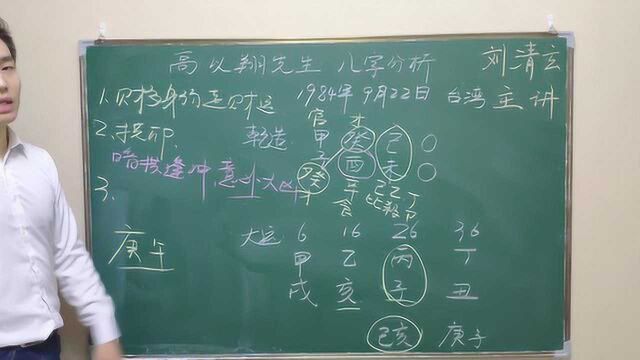 高以翔先生 八字分析 刘清玄
1.财格身弱走财运 1984年9月22日 台湾 主讲
官 才
2.损印. 乾造 甲 癸 己 〇
子 酉 未 〇
暗拱逢冲意外大凶
3. 癸 辛 己乙丁
才 食 比杀卩
大运 6 16 26 36
庚午 甲 乙 丙 丁
戌 亥 子 丑
己亥 庚子